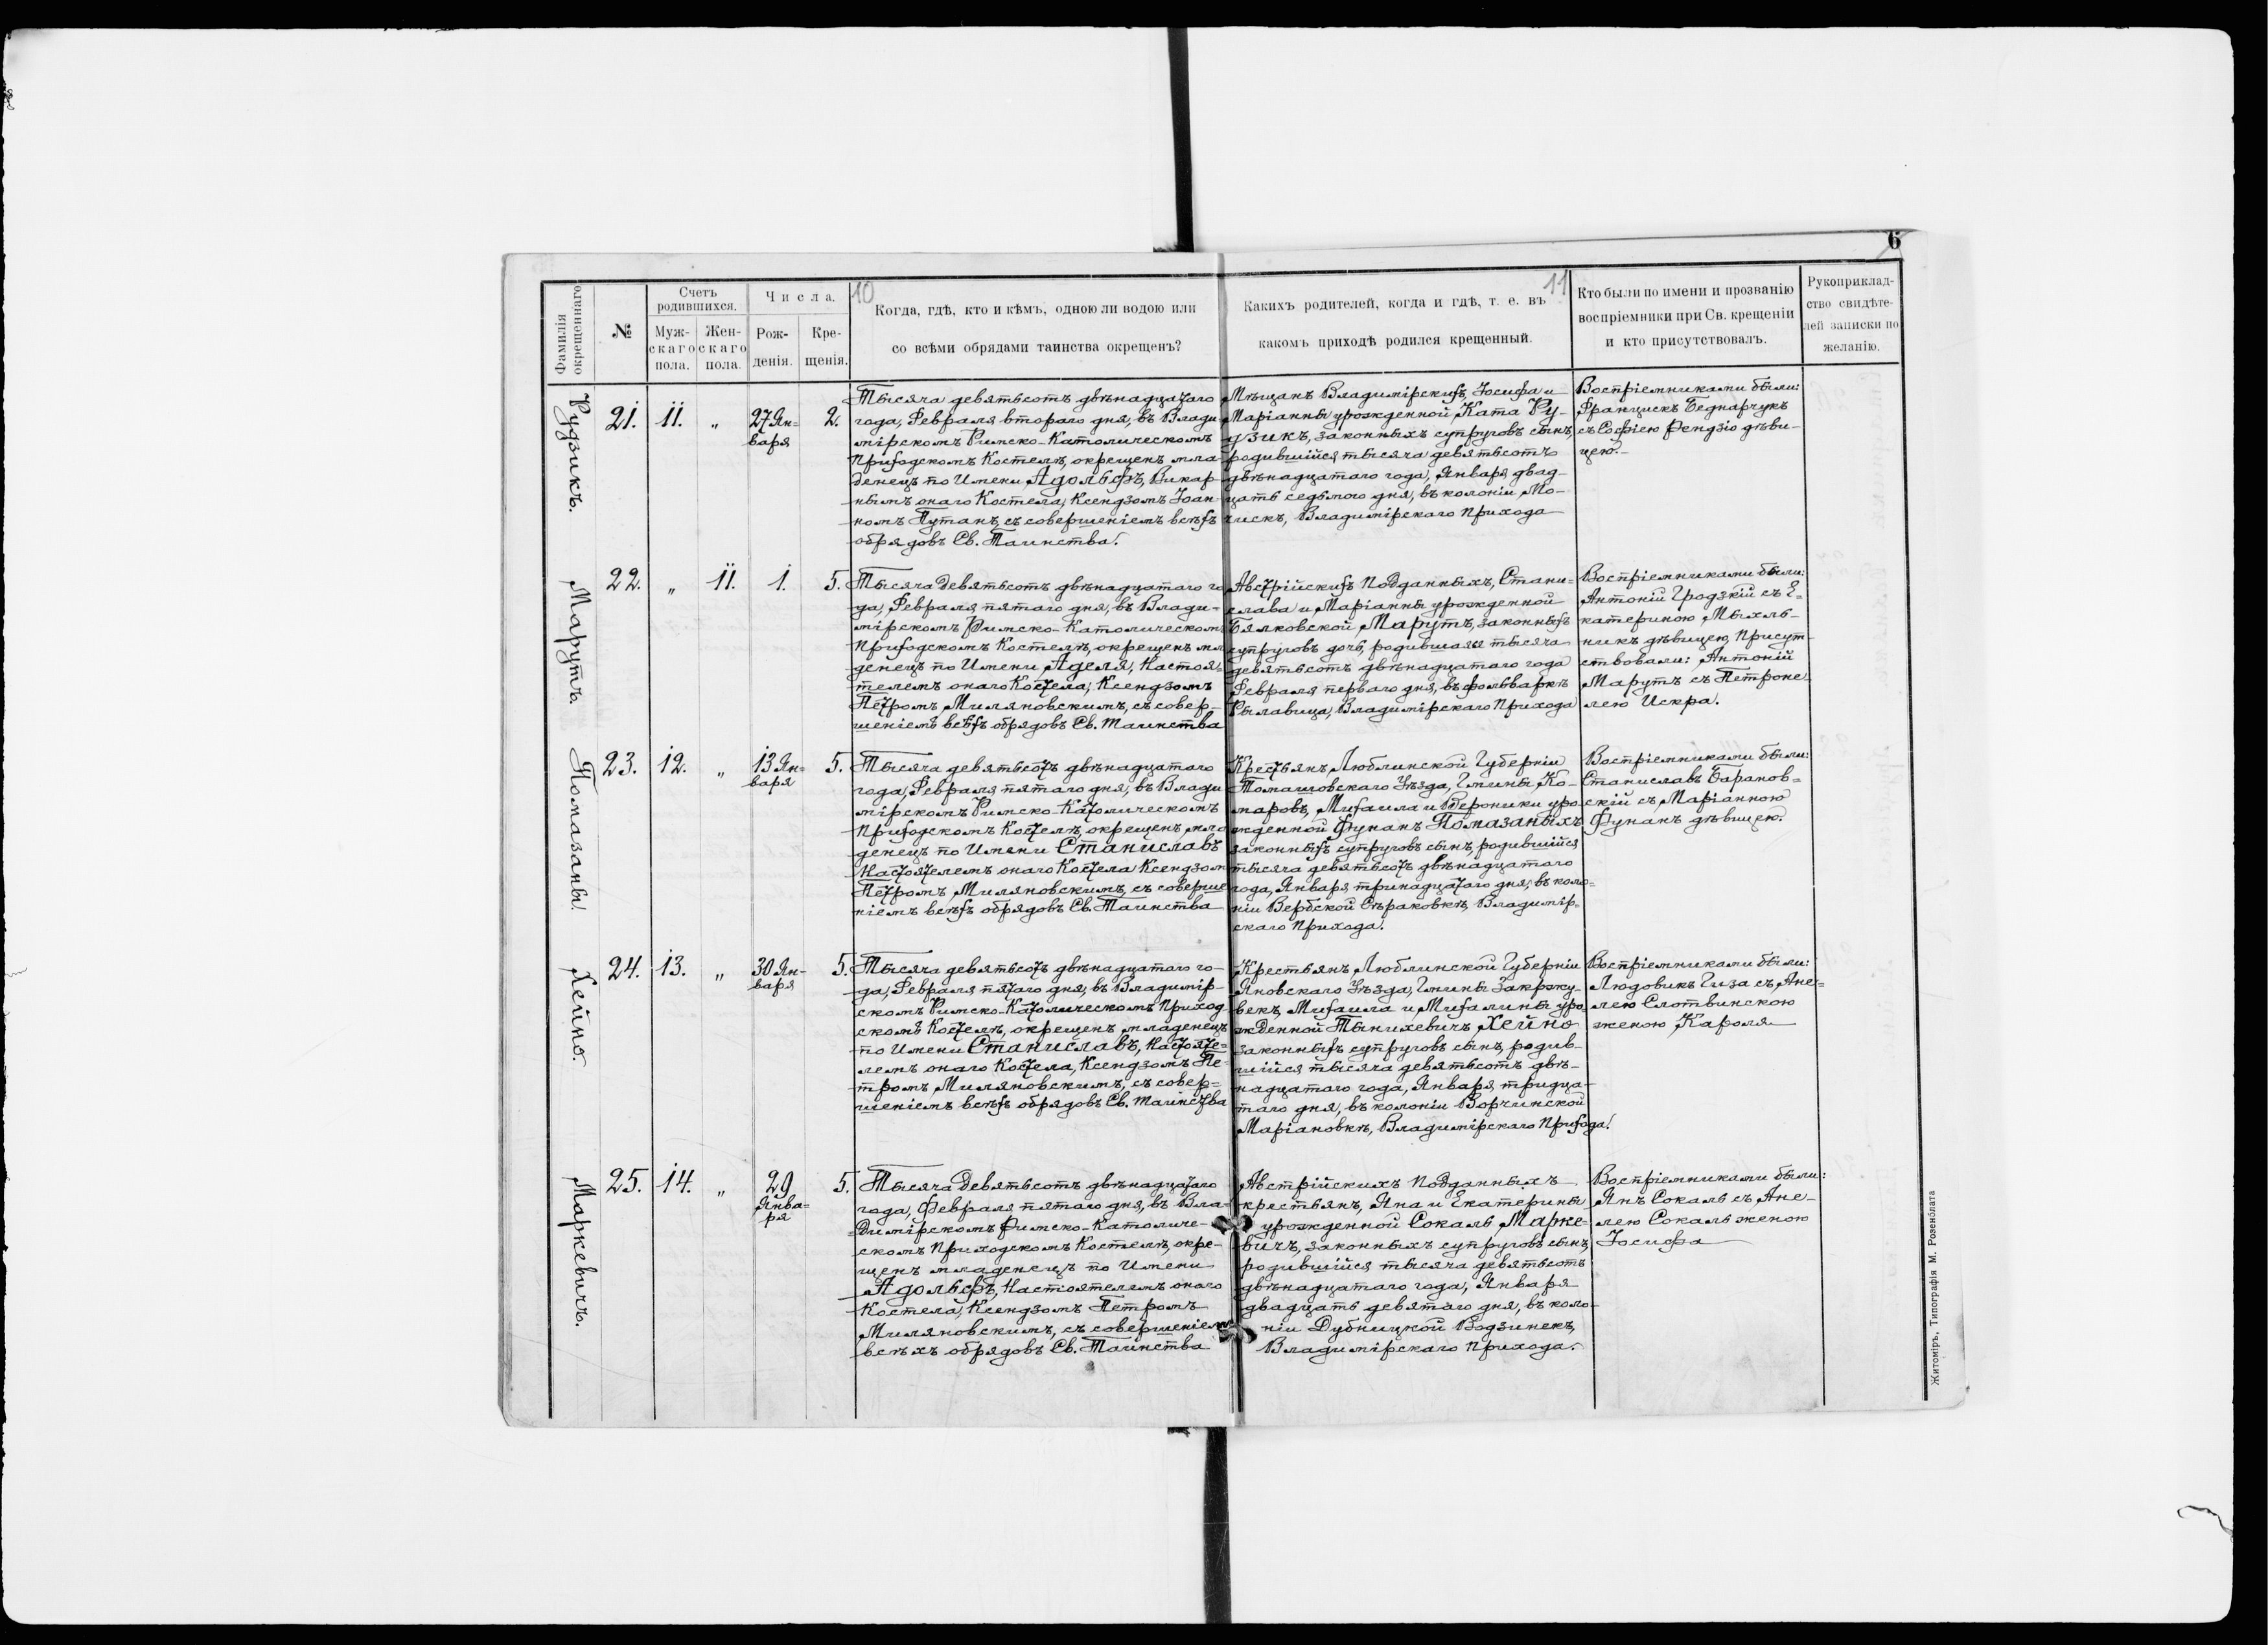 6
10
11
Фамилія окрещеннаго
№
Счетъ родившихся.
Муж-
скаго
пола.
Жен-
скаго
пола.
Числа.
Рож-
денія.
Кре-
щенія.
Когда, гдѣ, кто и кѣмъ, одною ли водою или
со всѣми обрядами таинства окрещенъ?
Какихъ родителей, когда и гдѣ, т. е. въ
какомъ приходѣ родился крещенный.
Кто были по имени и прозванію
воспріемники при Св. крещеніи
и кто присутствовалъ.
Рукоприклад-
ство свидѣте-
лей записки по
желанію.
Рудзикъ.
21. 11. „ 27 Ян-
варя
2.
Тысяча девятьсотъ двѣнадцатаго
года, Февраля втораго дня, въ Влади-
мірскомъ Римско-Католическомъ
Приходскомъ Костелѣ, окрещенъ мла-
денецъ по Имени Адольфъ, Викар-
нымъ онаго Костела, Ксендзомъ Іоан-
номъ Путанъ, съ совершеніемъ всѣхъ
обрядовъ Св. Таинства.
Мѣщанъ Владимірскихъ, Іосифа и
Маріанны урожденной Ката Ру-
дзикъ, законныхъ супруговъ сынъ,
родившійся тысяча девятьсотъ
двѣнадцатаго года, Января двад-
цать седьмого дня, въ колоніи Мо-
чискъ, Владимірскаго Прихода
Воспріемниками были:
Францискъ Беднарчукъ
съ Софіею Рендзіо дѣви-
цею.
Марутъ.
22. „ 11. 1. 5.
Тысяча девятьсотъ двѣнадцатаго го
да, Февраля пятаго дня, въ Влади-
мірскомъ Римско-Католическомъ
Приходскомъ Костелѣ, окрещенъ мла
денецъ по Имени Аделя, Настоя-
телемъ онаго Костела, Ксендзомъ
Петромъ Миляновскимъ, съ совер-
шеніемъ всѣхъ обрядовъ Св. Таинства
Австрійскихъ Подданныхъ, Стани-
слава и Маріанны урожденной
Бялковской Марутъ, законныхъ
супруговъ дочь, родившаяся тысяча
девятьсотъ двѣнадцатаго года
Февраля перваго дня, въ фольваркѣ
Рылавица, Владимірскаго Прихода
Воспріемниками были:
Антоній Гродзкій съ Е-
катериною Мыхль-
никъ дѣвицею, Присут-
ствовали: Антоній
Марутъ съ Петроне
лею Искра.
Помазаны.
23. 12. „ 13 Ян-
варя
5.
Тысяча девятьсотъ двѣнадцатаго
года, Февраля пятаго дня, въ Влади
мірскомъ Римско-Католическомъ
Приходскомъ Костелѣ, окрещенъ мла
денецъ по Имени Станиславъ
Настоятелемъ онаго Костела Ксендзом
Петромъ Миляновскимъ, съ соверше
ніемъ всѣхъ обрядовъ Св. Таинства
Крестьянъ Люблинской Губерніи
Томашовскаго Уѣзда, Гмины Ко-
маровъ, Михаила и Вероники уро-
жденной Фунанъ Помазаныхъ
законныхъ супруговъ сынъ, родившійся
тысяча девятьсотъ двѣнадцатаго
года, Января тринадцатаго дня, въ коло-
ніи Вербской Сѣраковкѣ, Владимір-
скаго Прихода.
Воспріемниками были:
Станиславъ Баранов-
скій съ Маріанною
Фунанъ дѣвицею.
Хейно.
24. 13. „ 30 Ян-
варя
5.
Тысяча девятьсотъ двѣнадцатаго го-
да, Февраля пятаго дня, въ Владимір-
скомъ Римско-Католическомъ Приход
скомъ Костелѣ, окрещенъ младенецъ
по Имени Станиславъ, Настояте-
лемъ онаго Костела, Ксендзомъ Пе-
тромъ Миляновскимъ, съ совер-
шеніемъ всѣхъ обрядовъ Св. Таинства
Крестьянъ Люблинской Губерніи
Яновскаго Уѣзда, Гмины Закржу-
векъ, Михаила и Михалины уро-
жденной Тынихевичъ Хейно
законныхъ супруговъ сынъ, родив-
шійся тысяча девятьсотъ двѣ-
надцатаго года, Января тридца-
таго дня, въ колоніи Ворчинской
Маріановкѣ, Владимірскаго Прихода.
Воспріемниками были:
Людовикъ Гиза съ Ане-
лею Слотвинскою
женою Кароля
Маркевичъ.
25. 14. „ 29
Янва-
ря
5.
Тысяча девятьсотъ двѣнадцатаго
года, Февраля пятаго дня, въ Вла-
димірскомъ Римско-Католиче-
скомъ Приходскомъ Костелѣ, окре-
щенъ младенецъ по Имени
Адольфъ, Настоятелемъ онаго
Костела, Ксендзомъ Петромъ
Миляновскимъ, съ совершеніем
всѣхъ обрядовъ Св. Таинства
Австрійскихъ Подданныхъ
крестьянъ, Яна и Екатерины
урожденной Сокаль Марке-
вичъ, законныхъ супруговъ сынъ,
родившійся тысяча девятьсотъ
двѣнадцатаго года, Января
двадцать девятаго дня, въ коло-
ніи Дубницкой Водзинекъ,
Владимірскаго Прихода.
Воспріемниками были:
Янъ Сокаль съ Ане-
лею Сокаль женою
Іосифа
Житоміръ, Типографія М. Розенблата